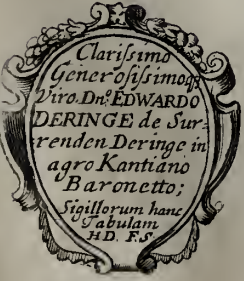 Clarissimo
Generosissimoq;
Viro. Dno. EDWARDO
DERINGE de Sur-
renden Deringe in
agro Kantiano
Baronetto;
Sigillorum hanc
Tabulam
H D. F. S